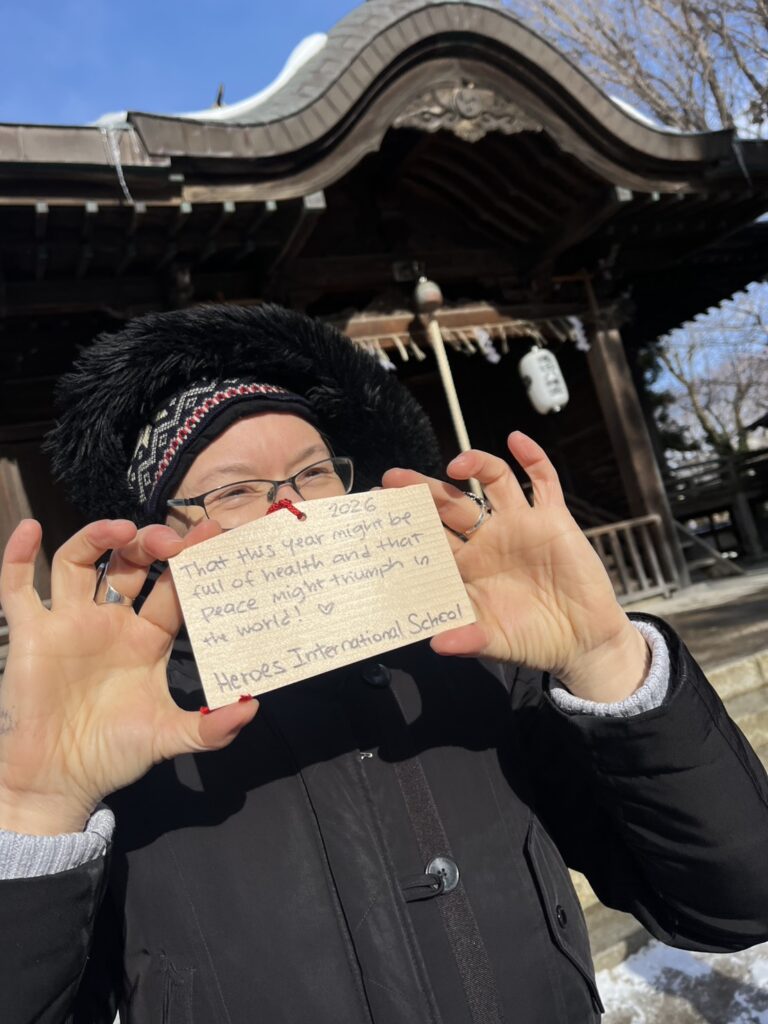 2026
That this year might be
full of health and that
peace might triumph in
the world! ♡
Heroes International School